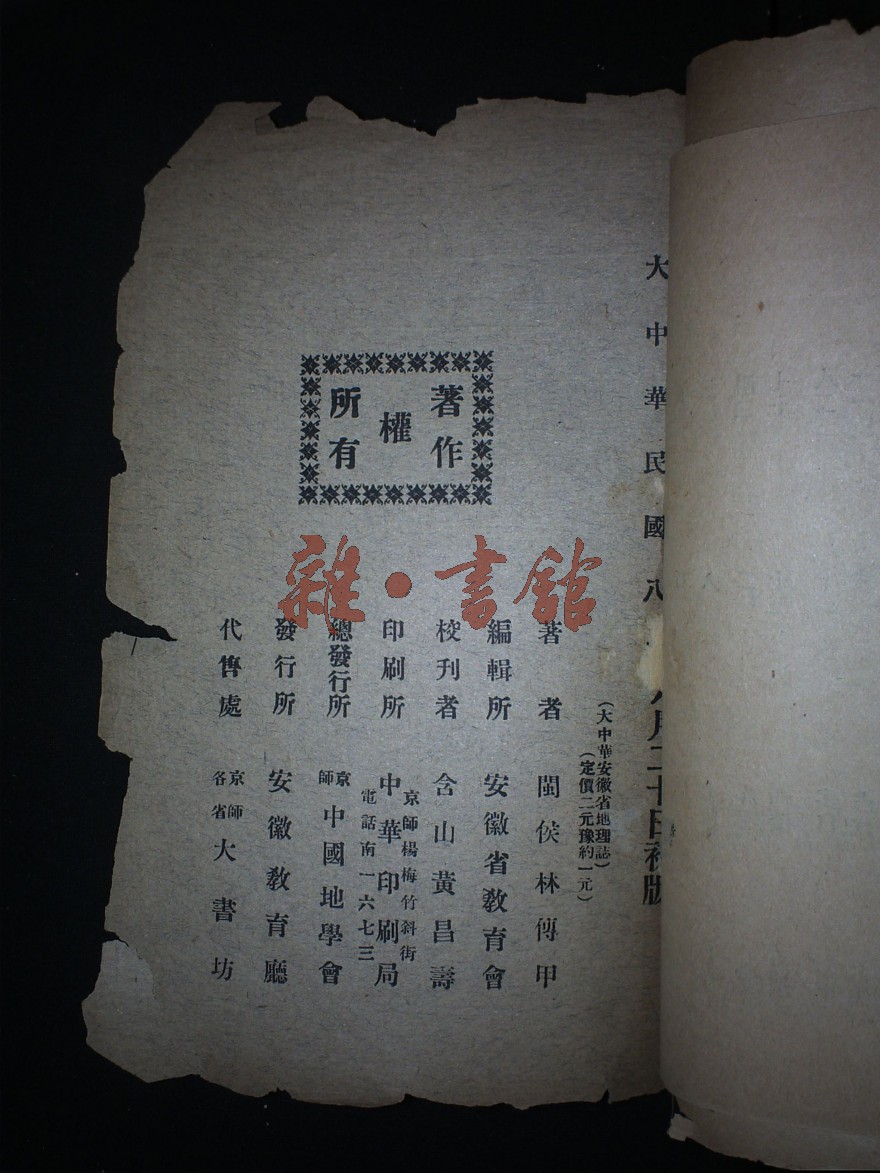 大中華民國八
月二十日初版
(大中華安徽省地理誌)
(定價二元豫約一元)
著者 閩侯林傳甲
編輯所 安徽省教育會
校刊者 含山黃昌壽
印刷所 京師楊梅竹斜街
中華印刷局
電話南一六七三
總發行所 京師中國地學會
發行所 安徽教育廳
代售處 京師各省大書坊
著作權所有
雜·書館